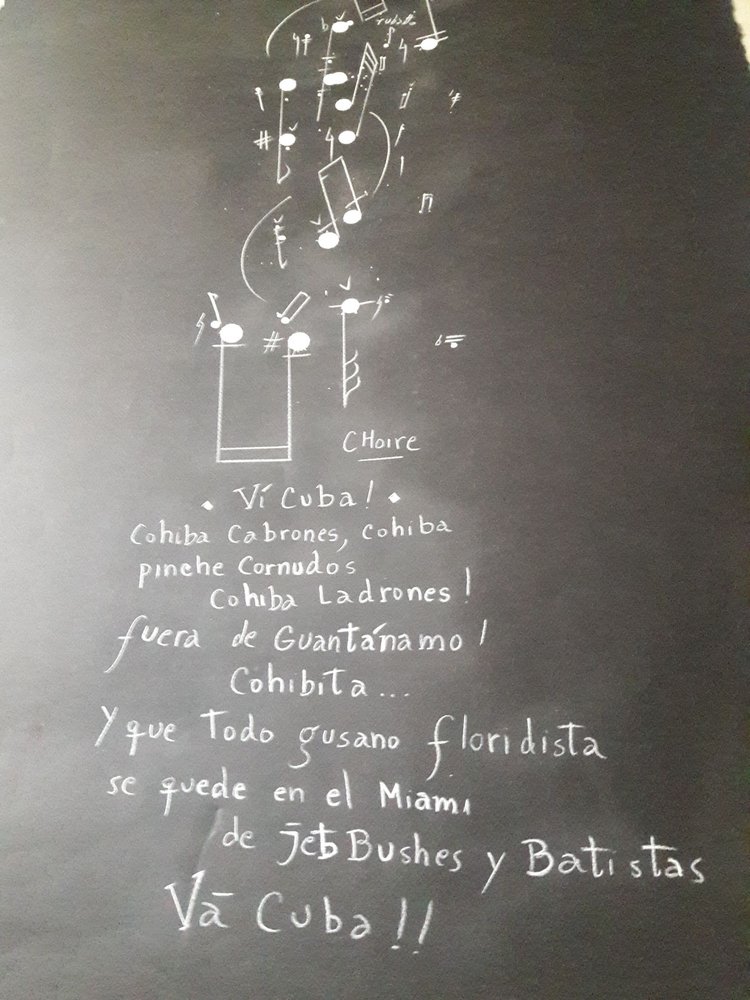 CHoire
Ví Cuba!
Cohiba Cabrones, cohiba
pinche Cornudos
Cohiba Ladrones!
fuera de Guantánamo!
Cohibita...
Y que Todo gusano floridista
se quede en el Miami
de jeb Bushes y Batistas
Vā Cuba!!